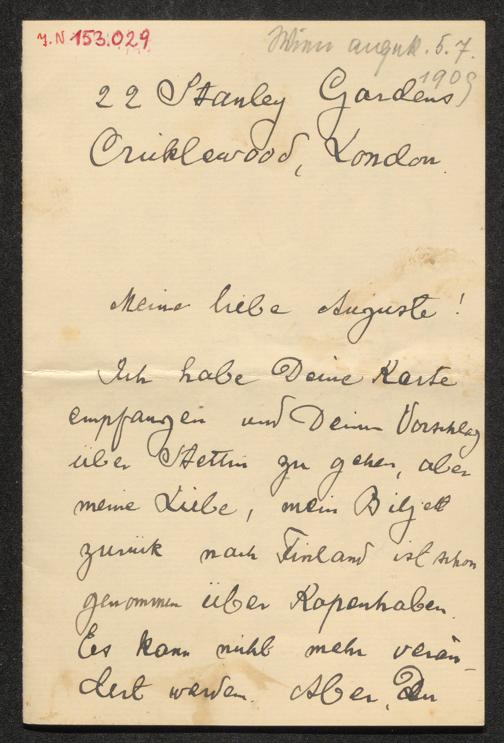 J.N 153.029
Wien angek. 5.7.
1909
22 Stanley Gardens
Cricklewood, London.
Meine liebe Auguste!
Ich habe Deine Karte
empfangen und Deinen Vorschlag
über Stettin zu gehen, aber
meine Liebe, mein Biljet
zurück nach Finland ist schon
genommen über Kopenhaben.
Es kann nicht mehr verän-
dert werden. Aber, Du